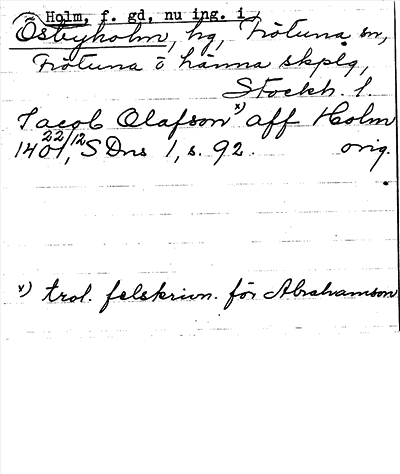 Holm, f. gd, nu ing. i
Östbyholm, hg, Frötuna sn,
Frötuna o Länna skplg,
Stockh. l.
Jacob Olafson x) aff Holm
1401 22/12, SDns 1, s. 92. orig.
x) trol. felskrivn. för Abrahamson